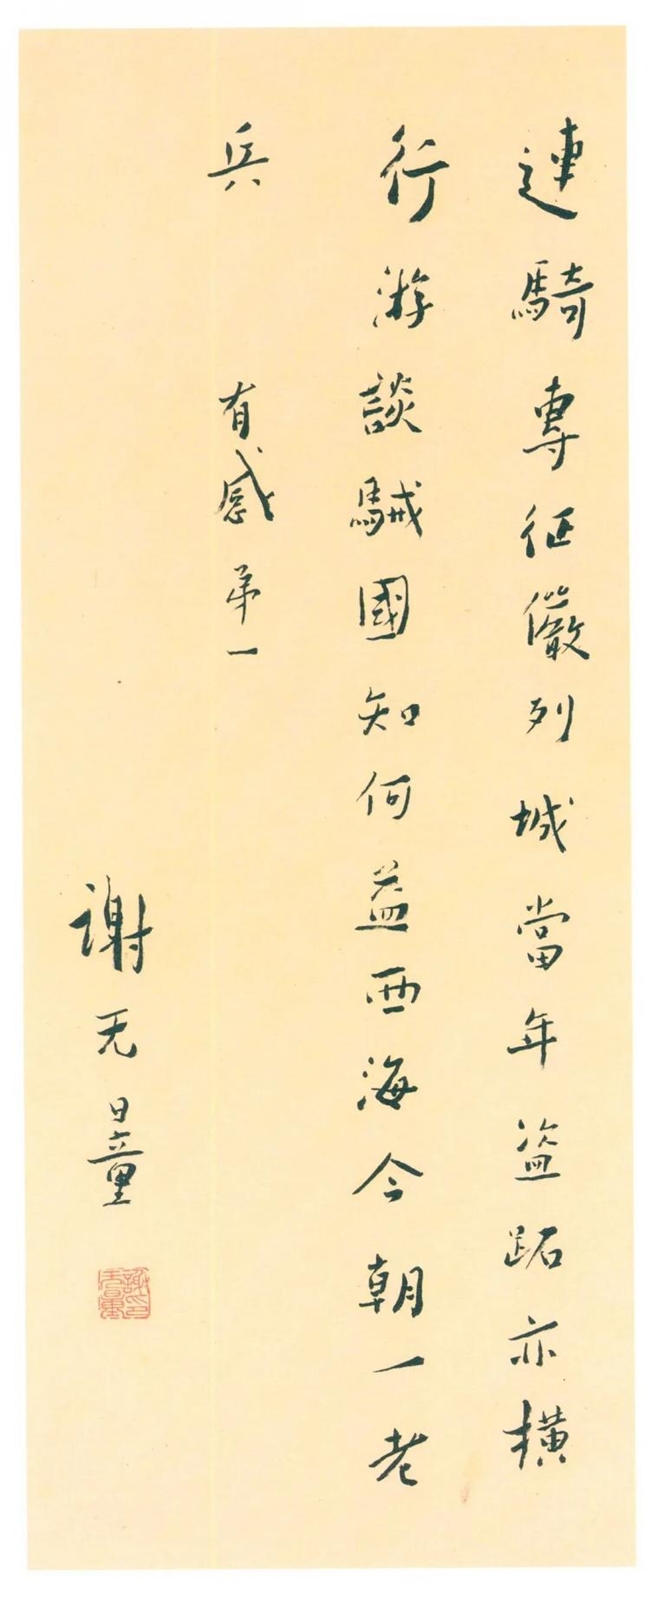 連騎專征儼列城當年盜跖亦橫
行游談駴國知何益西海今朝一老
兵
有感弟一
謝无量